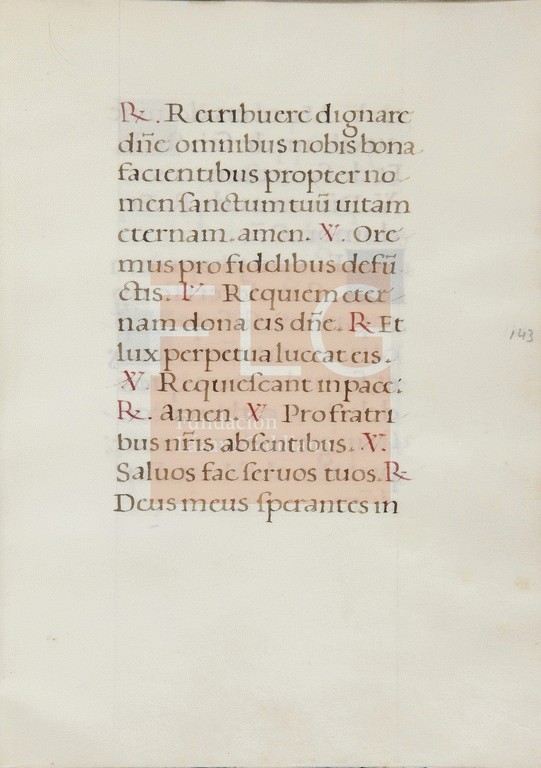 ℟. Retribuere dignare
dn̄e omnibus nobis bona
facientibus propter no
men ſanctum tuū uitam
eternam. amen. ℣. Ore
mus pro fidelibus defū
ctis. ℣ Requiem eter
nam dona eis dn̄e. ℟ Et
lux perpetua luceat eis.
℣. Requieſcant in pace:
℟. Amen. ℣ Pro fratri
bus nr̄is abſentibus. ℣.
Saluos fac ſeruos tuos. ℟
Deus meus ſperantes in
143
FLG
Fundación